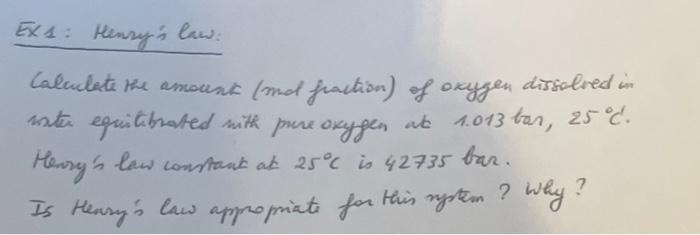 EX1: Henry's law:
Calculate the amount (mol fraction) of oxygen dissolved in
water equilibrated with pure oxygen at 1.013 bar, 25°C.
Henry's law constant at 25°C is 42735 bar.
Is Henry's law appropriate for this system? Why?